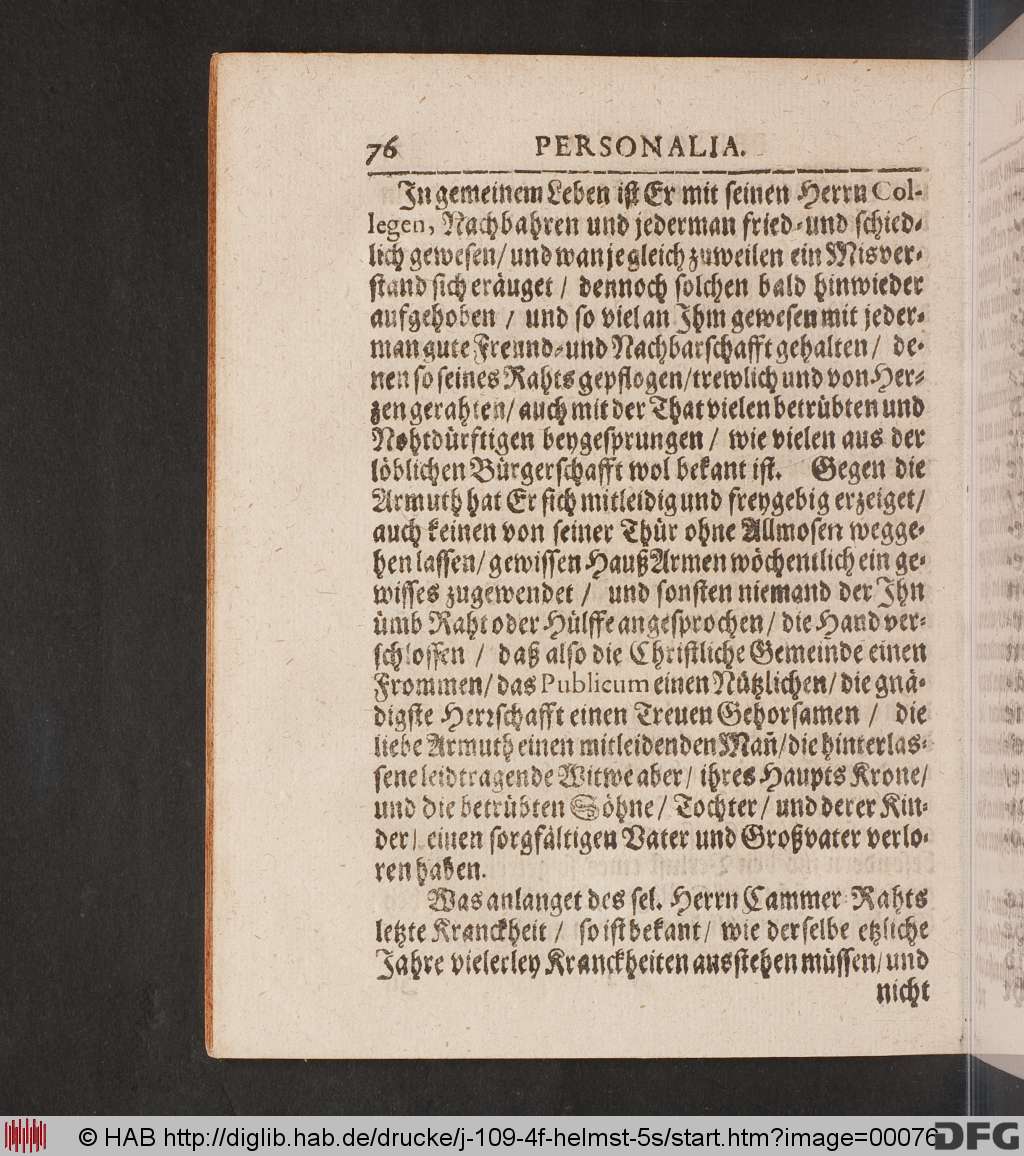 76 PERSONALIA.
In gemeinem Leben ist Er mit seinen Herrn Col-
legen, Nachbahren und jederman fried- und schied-
lich gewesen / und wan je gleich zuweilen ein Misver-
stand sich eräuget / dennoch solchen bald hinwieder
aufgehoben / und so viel an Ihm gewesen mit jeder-
man gute Freund- und Nachbarschafft gehalten / de-
nen so seines Rahts gepflogen / trewlich und von Her-
zen gerahten / auch mit der That vielen betrübten und
Nohtdürftigen beygesprungen / wie vielen aus der
löblichen Bürgerschafft wol bekant ist. Gegen die
Armuth hat Er sich mitleidig und freygebig erzeiget /
auch keinen von seiner Thür ohne Allmosen wegge-
hen lassen / gewissen Hauß Armen wöchentlich ein ge-
wisses zugewendet / und sonsten niemand der Ihn
ümb Raht oder Hülffe angesprochen / die Hand ver-
schlossen / daß also die Christliche Gemeinde einen
Frommen / das Publicum einen Nützlichen / die gnä-
digste Herrschafft einen Treuen Gehorsamen / die
liebe Armuth einen mitleidenden Mañ / die hinterlas-
sene leidtragende Witwe aber / ihres Haupts Krone /
und die betrübten Söhne / Tochter / und derer Kin-
der / einen sorgfältigen Vater und Großvater verlo-
ren haben.
Was anlanget des sel. Herrn Cammer-Rahts
letzte Kranckheit / so ist bekant / wie derselbe etzliche
Jahre vielerley Kranckheiten ausstehen müssen / und
nicht
© HAB http://diglib.hab.de/drucke/j-109-4f-helmst-5s/start.htm?image=00076
DFG